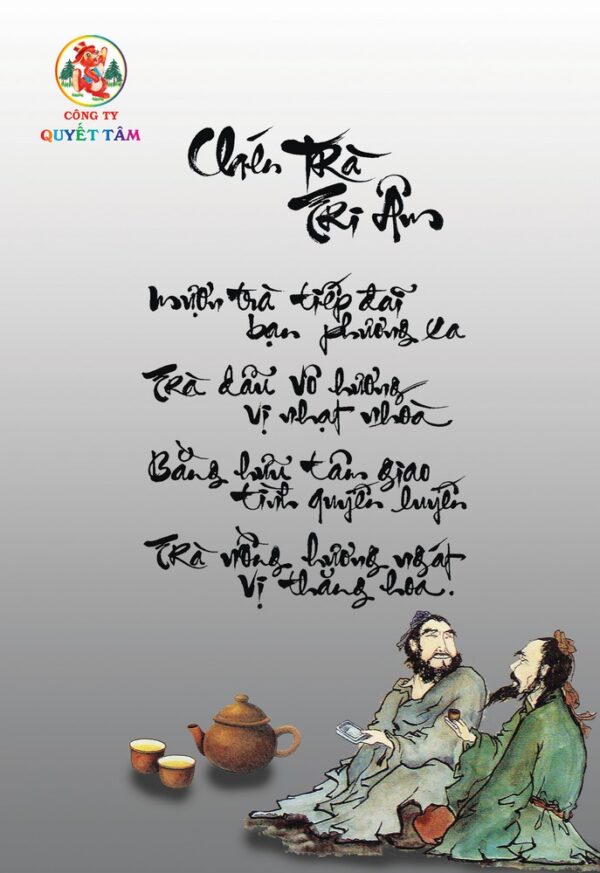 CÔNG TY
QUYẾT TÂM
Chén Trà
Tri Âm
Mượn trà tiếp đãi
bạn phương xa
Trà dẫu vô hương
vị nhạt nhoà
Bằng hữu tâm giao
tình quyến luyến
Trà nồng hương ngát
vị thăng hoa.